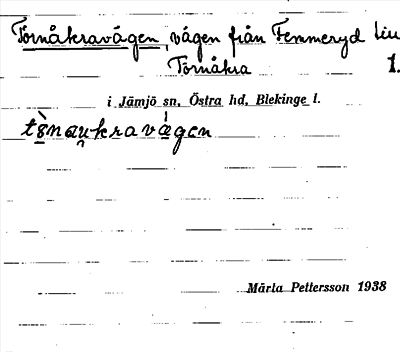 Törnåkravägen, vägen från Femmeryd till
Törnåkra 1.
i Jämjö sn, Östra hd, Blekinge l.
tö̀nau̯kravä́gen
Märta Pettersson 1938